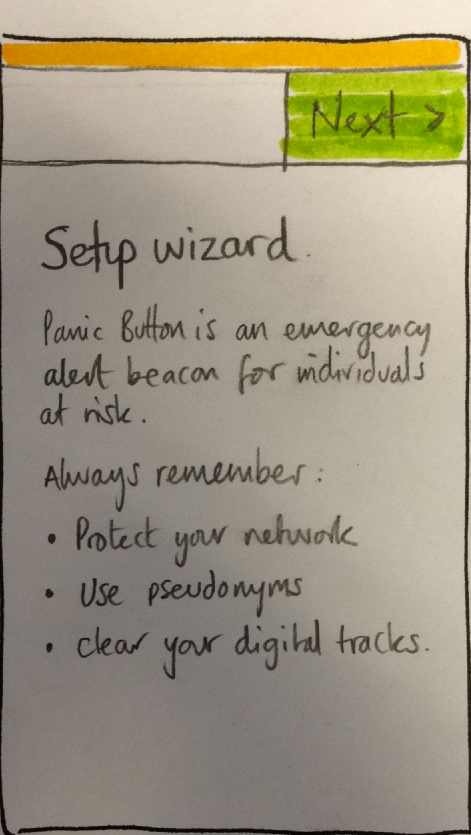 Next >
Setup wizard.
Panic Button is an emergency
alert beacon for individuals
at risk.
Always remember:
• Protect your network
• Use pseudonyms
• clear your digital tracks.